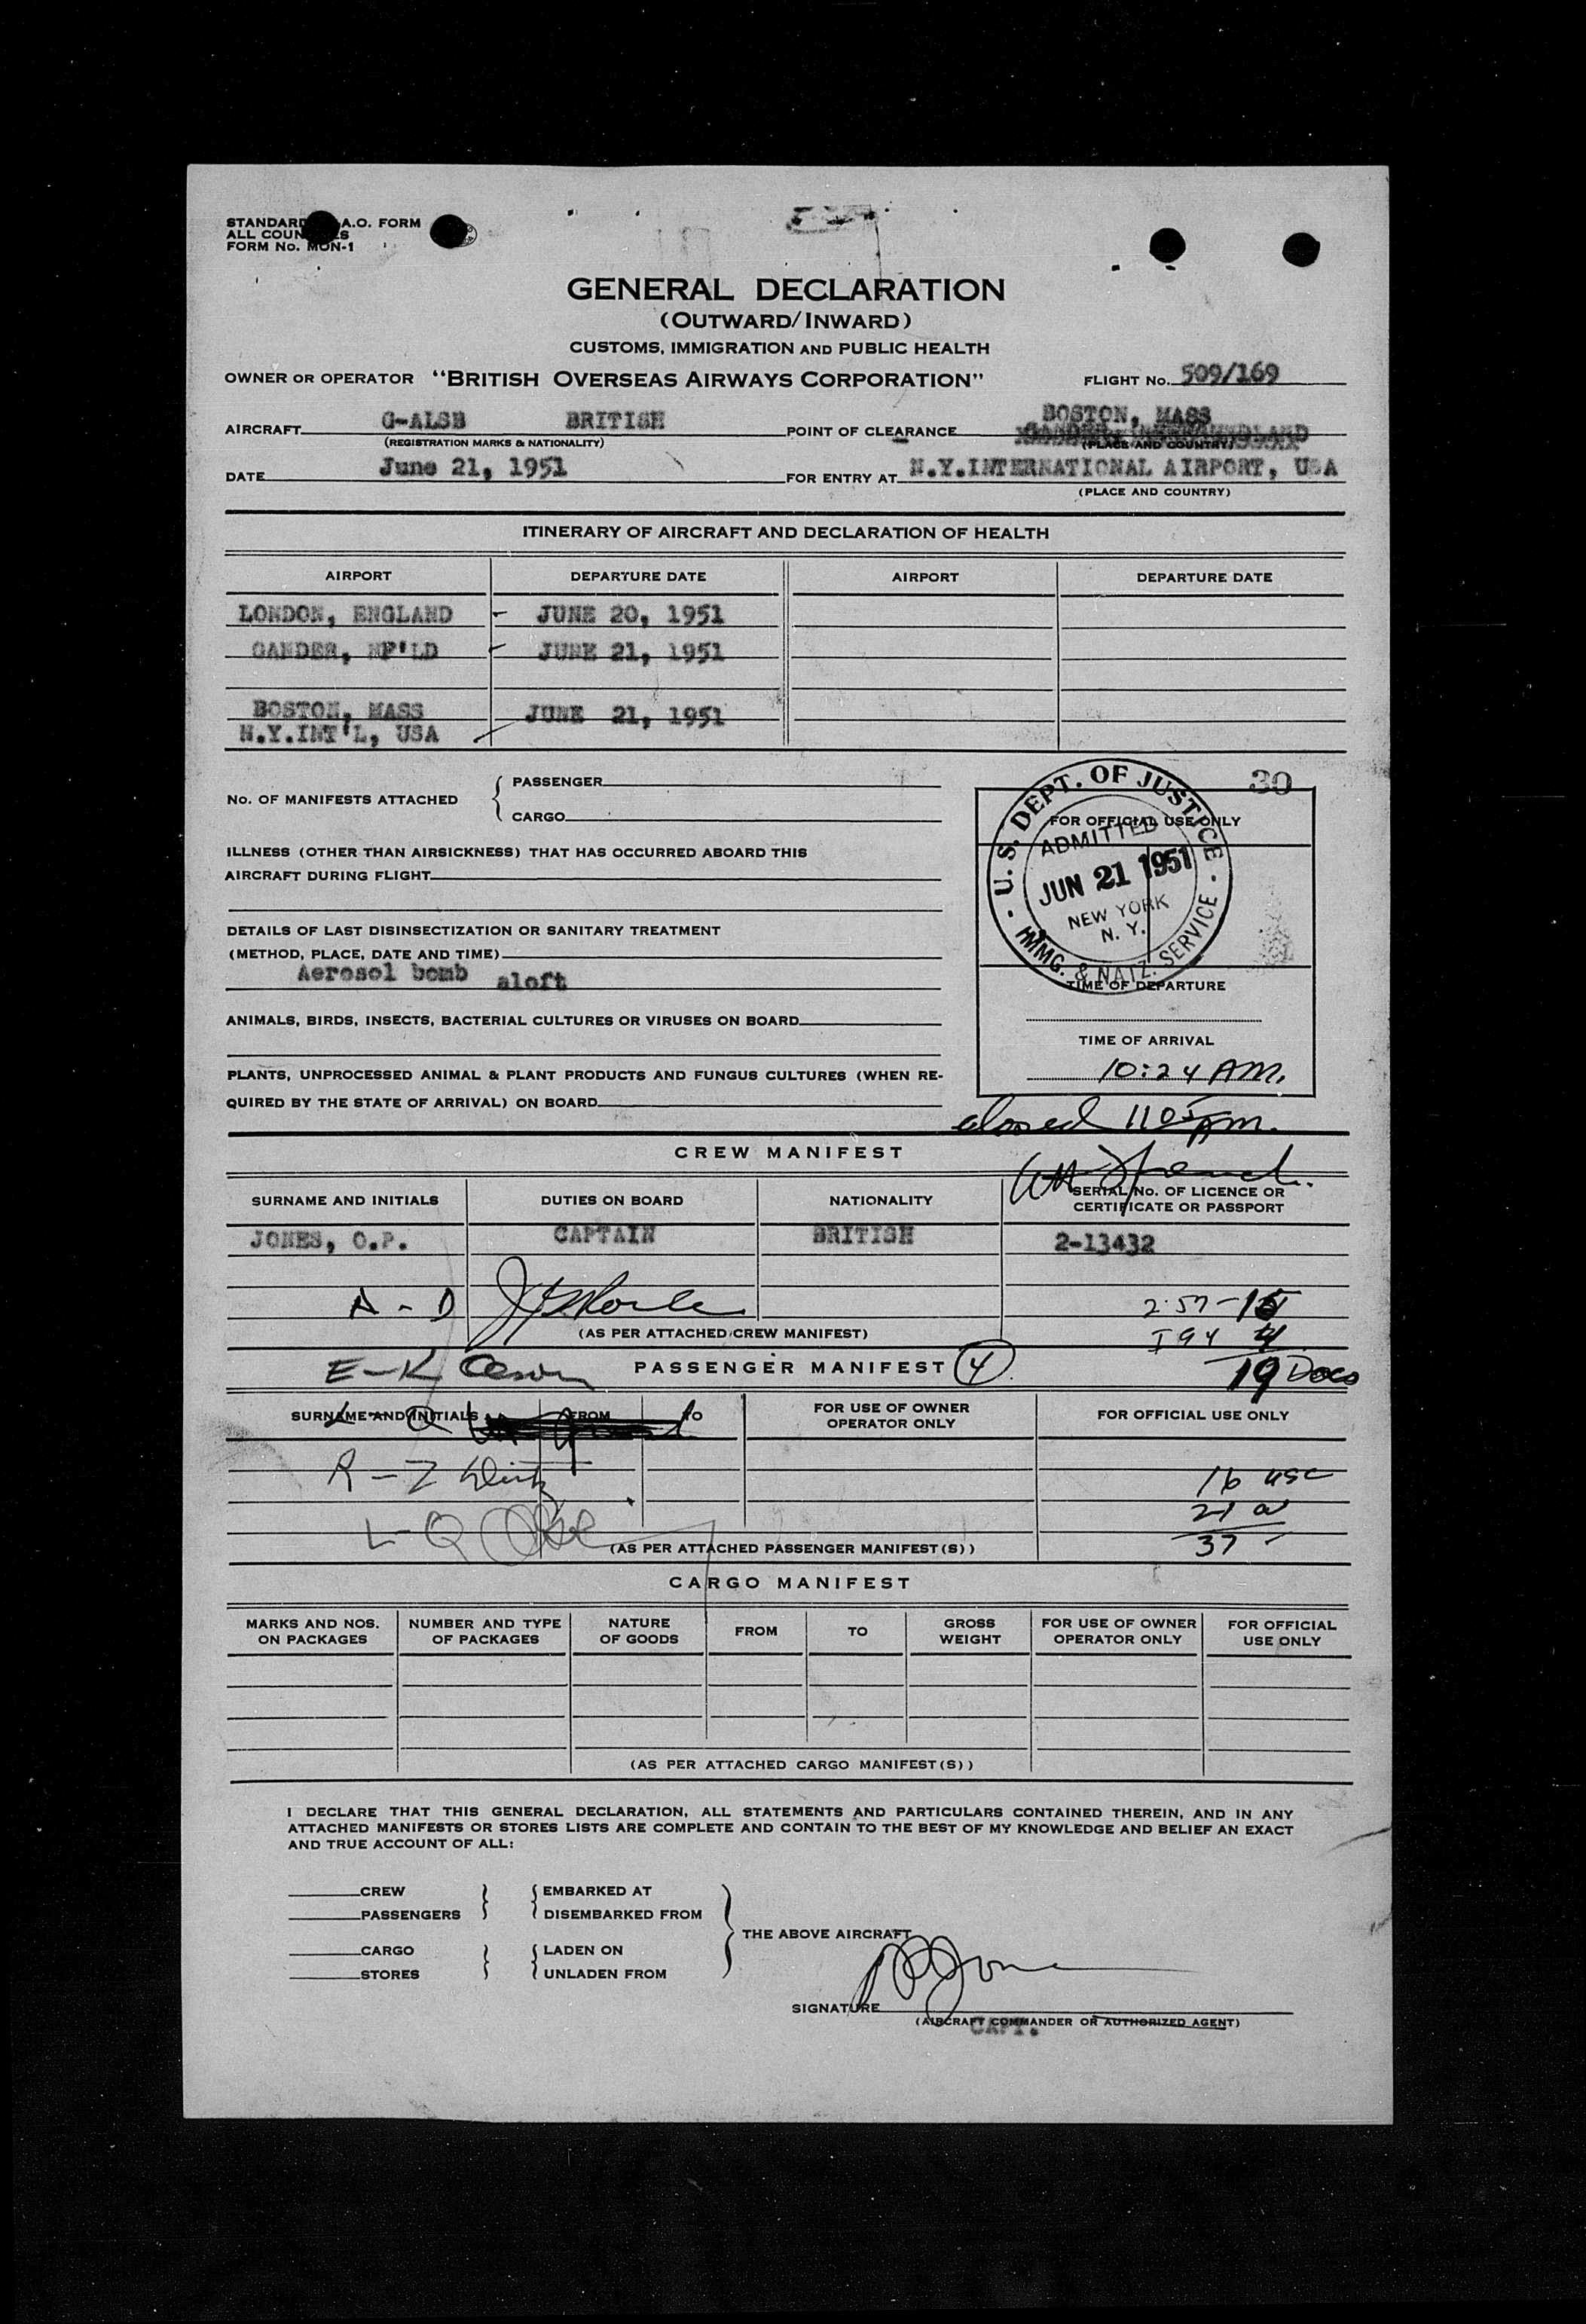 STANDARD A.O. FORM
ALL COUN S
FORM No. MON-1
GENERAL DECLARATION
(OUTWARD/INWARD)
CUSTOMS, IMMIGRATION AND PUBLIC HEALTH
OWNER OR OPERATOR "BRITISH OVERSEAS AIRWAYS CORPORATION" FLIGHT No. 509/169
BOSTON, MASS
AIRCRAFT G-ALSB BRITISH POINT OF CLEARANCE
(REGISTRATION MARKS & NATIONALITY) (PLACE AND COUNTRY)
DATE June 21, 1951 FOR ENTRY AT N.Y.INTERNATIONAL AIRPORT, USA
(PLACE AND COUNTRY)
ITINERARY OF AIRCRAFT AND DECLARATION OF HEALTH
AIRPORT DEPARTURE DATE AIRPORT DEPARTURE DATE
LONDON, ENGLAND - JUNE 20, 1951
GANDER, NF'LD - JUNE 21, 1951
BOSTON, MASS JUNE 21, 1951
N.Y.INT'L, USA
No. OF MANIFESTS ATTACHED { PASSENGER
CARGO
30
FOR OFFICIAL USE ONLY
U.S. DEPT. OF JUSTICE - IMMIG. & NATZ. SERVICE -
ADMITTED
JUN 21 1951
NEW YORK
N. Y.
ILLNESS (OTHER THAN AIRSICKNESS) THAT HAS OCCURRED ABOARD THIS
AIRCRAFT DURING FLIGHT
DETAILS OF LAST DISINSECTIZATION OR SANITARY TREATMENT
(METHOD, PLACE, DATE AND TIME)
Aerosol bomb aloft
TIME OF DEPARTURE
ANIMALS, BIRDS, INSECTS, BACTERIAL CULTURES OR VIRUSES ON BOARD
TIME OF ARRIVAL
10:24 AM.
PLANTS, UNPROCESSED ANIMAL & PLANT PRODUCTS AND FUNGUS CULTURES (WHEN RE-
QUIRED BY THE STATE OF ARRIVAL) ON BOARD
closed 1105 AM.
CREW MANIFEST
SURNAME AND INITIALS DUTIES ON BOARD NATIONALITY SERIAL No. OF LICENCE OR
CERTIFICATE OR PASSPORT
JONES, O.P. CAPTAIN BRITISH 2-13432
A - D 2·57 - 15
(AS PER ATTACHED CREW MANIFEST) I 94 4
E - K PASSENGER MANIFEST 4 19 Docs
SURNAME AND INITIALS FROM TO FOR USE OF OWNER
OPERATOR ONLY FOR OFFICIAL USE ONLY
L - Q
R - Z 16 usc
21 a
L - Q 37
(AS PER ATTACHED PASSENGER MANIFEST(S))
CARGO MANIFEST
MARKS AND NOS.
ON PACKAGES NUMBER AND TYPE
OF PACKAGES NATURE
OF GOODS FROM TO GROSS
WEIGHT FOR USE OF OWNER
OPERATOR ONLY FOR OFFICIAL
USE ONLY
(AS PER ATTACHED CARGO MANIFEST(S))
I DECLARE THAT THIS GENERAL DECLARATION, ALL STATEMENTS AND PARTICULARS CONTAINED THEREIN, AND IN ANY
ATTACHED MANIFESTS OR STORES LISTS ARE COMPLETE AND CONTAIN TO THE BEST OF MY KNOWLEDGE AND BELIEF AN EXACT
AND TRUE ACCOUNT OF ALL:
CREW EMBARKED AT
PASSENGERS DISEMBARKED FROM
THE ABOVE AIRCRAFT
CARGO LADEN ON
STORES UNLADEN FROM
SIGNATURE O P Jones
(AIRCRAFT COMMANDER OR AUTHORIZED AGENT)
CAPT.